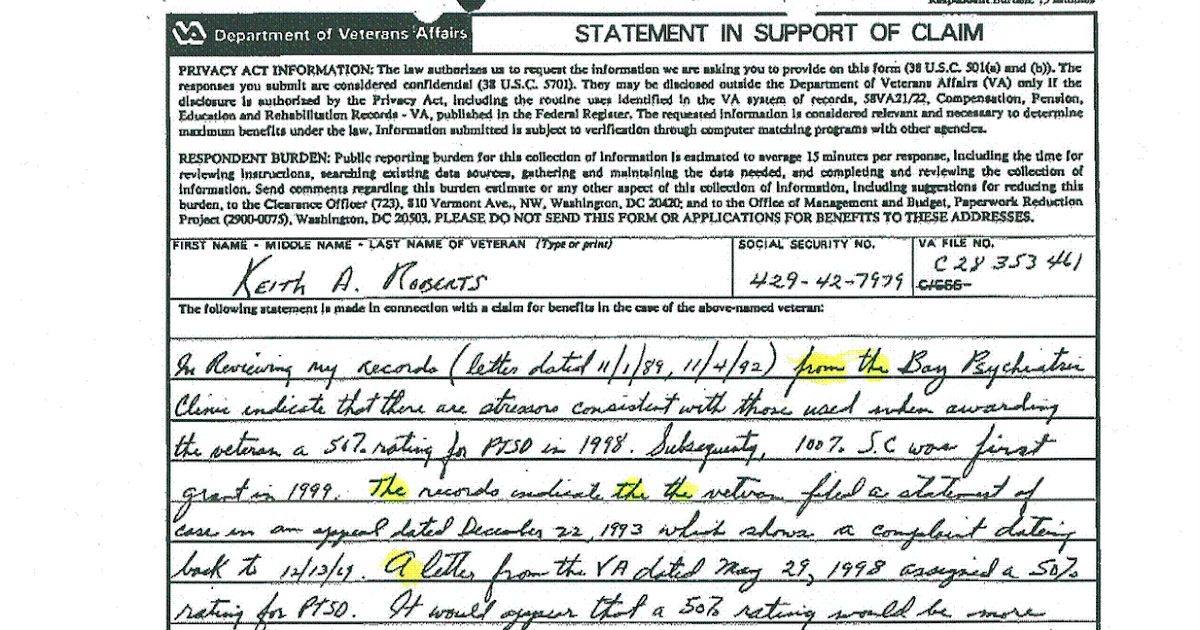 Respondent Burden: 15 minutes
VA Department of Veterans Affairs
STATEMENT IN SUPPORT OF CLAIM
PRIVACY ACT INFORMATION: The law authorizes us to request the information we are asking you to provide on this form (38 U.S.C. 501(a) and (b)). The
responses you submit are considered confidential (38 U.S.C. 5701). They may be disclosed outside the Department of Veterans Affairs (VA) only if the
disclosure is authorized by the Privacy Act, including the routine uses identified in the VA system of records, 58VA21/22, Compensation, Pension,
Education and Rehabilitation Records - VA, published in the Federal Register. The requested information is considered relevant and necessary to determine
maximum benefits under the law. Information submitted is subject to verification through computer matching programs with other agencies.
RESPONDENT BURDEN: Public reporting burden for this collection of information is estimated to average 15 minutes per response, including the time for
reviewing instructions, searching existing data sources, gathering and maintaining the data needed, and completing and reviewing the collection of
information. Send comments regarding this burden estimate or any other aspect of this collection of information, including suggestions for reducing this
burden, to the Clearance Officer (723), 810 Vermont Ave., NW, Washington, DC 20420; and to the Office of Management and Budget, Paperwork Reduction
Project (2900-0075), Washington, DC 20503. PLEASE DO NOT SEND THIS FORM OR APPLICATIONS FOR BENEFITS TO THESE ADDRESSES.
FIRST NAME - MIDDLE NAME - LAST NAME OF VETERAN (Type or print)
Keith A. Roberts
SOCIAL SECURITY NO.
429-42-7979
VA FILE NO.
C 28 353 461
C/CSS-
The following statement is made in connection with a claim for benefits in the case of the above-named veteran:
In Reviewing my records (letter dated 11/1/89, 11/4/92) from the Bay Psychiatric
Clinic indicate that there are stressors consistent with those used when awarding
the veteran a 50% rating for PTSD in 1998. Subsequenty, 100% S.C was first
grant in 1999. The records indicate the the veteran filed a statement of
case in an appeal dated December 22, 1993 which shows a complaint dating
back to 12/13/69. A letter from the VA dated May 29, 1998 assigned a 50%
rating for PTSD. It would appear that a 50% rating would be more